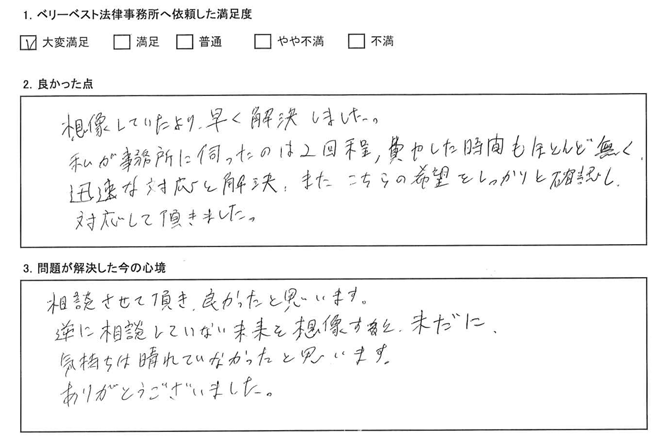 1. ベリーベスト法律事務所へ依頼した満足度
☑ 大変満足 □ 満足 □ 普通 □ やや不満 □ 不満
2. 良かった点
想像していたより、早く解決しました。
私が事務所に伺ったのは2回程、費やした時間もほとんど無く、
迅速な対応と解決、また こちらの希望をしっかりと確認し、
対応して頂きました。
3. 問題が解決した今の心境
相談させて頂き、良かったと思います。
逆に相談していない未来を想像すると、未だに、
気持ちは晴れていなかったと思います。
ありがとうございました。